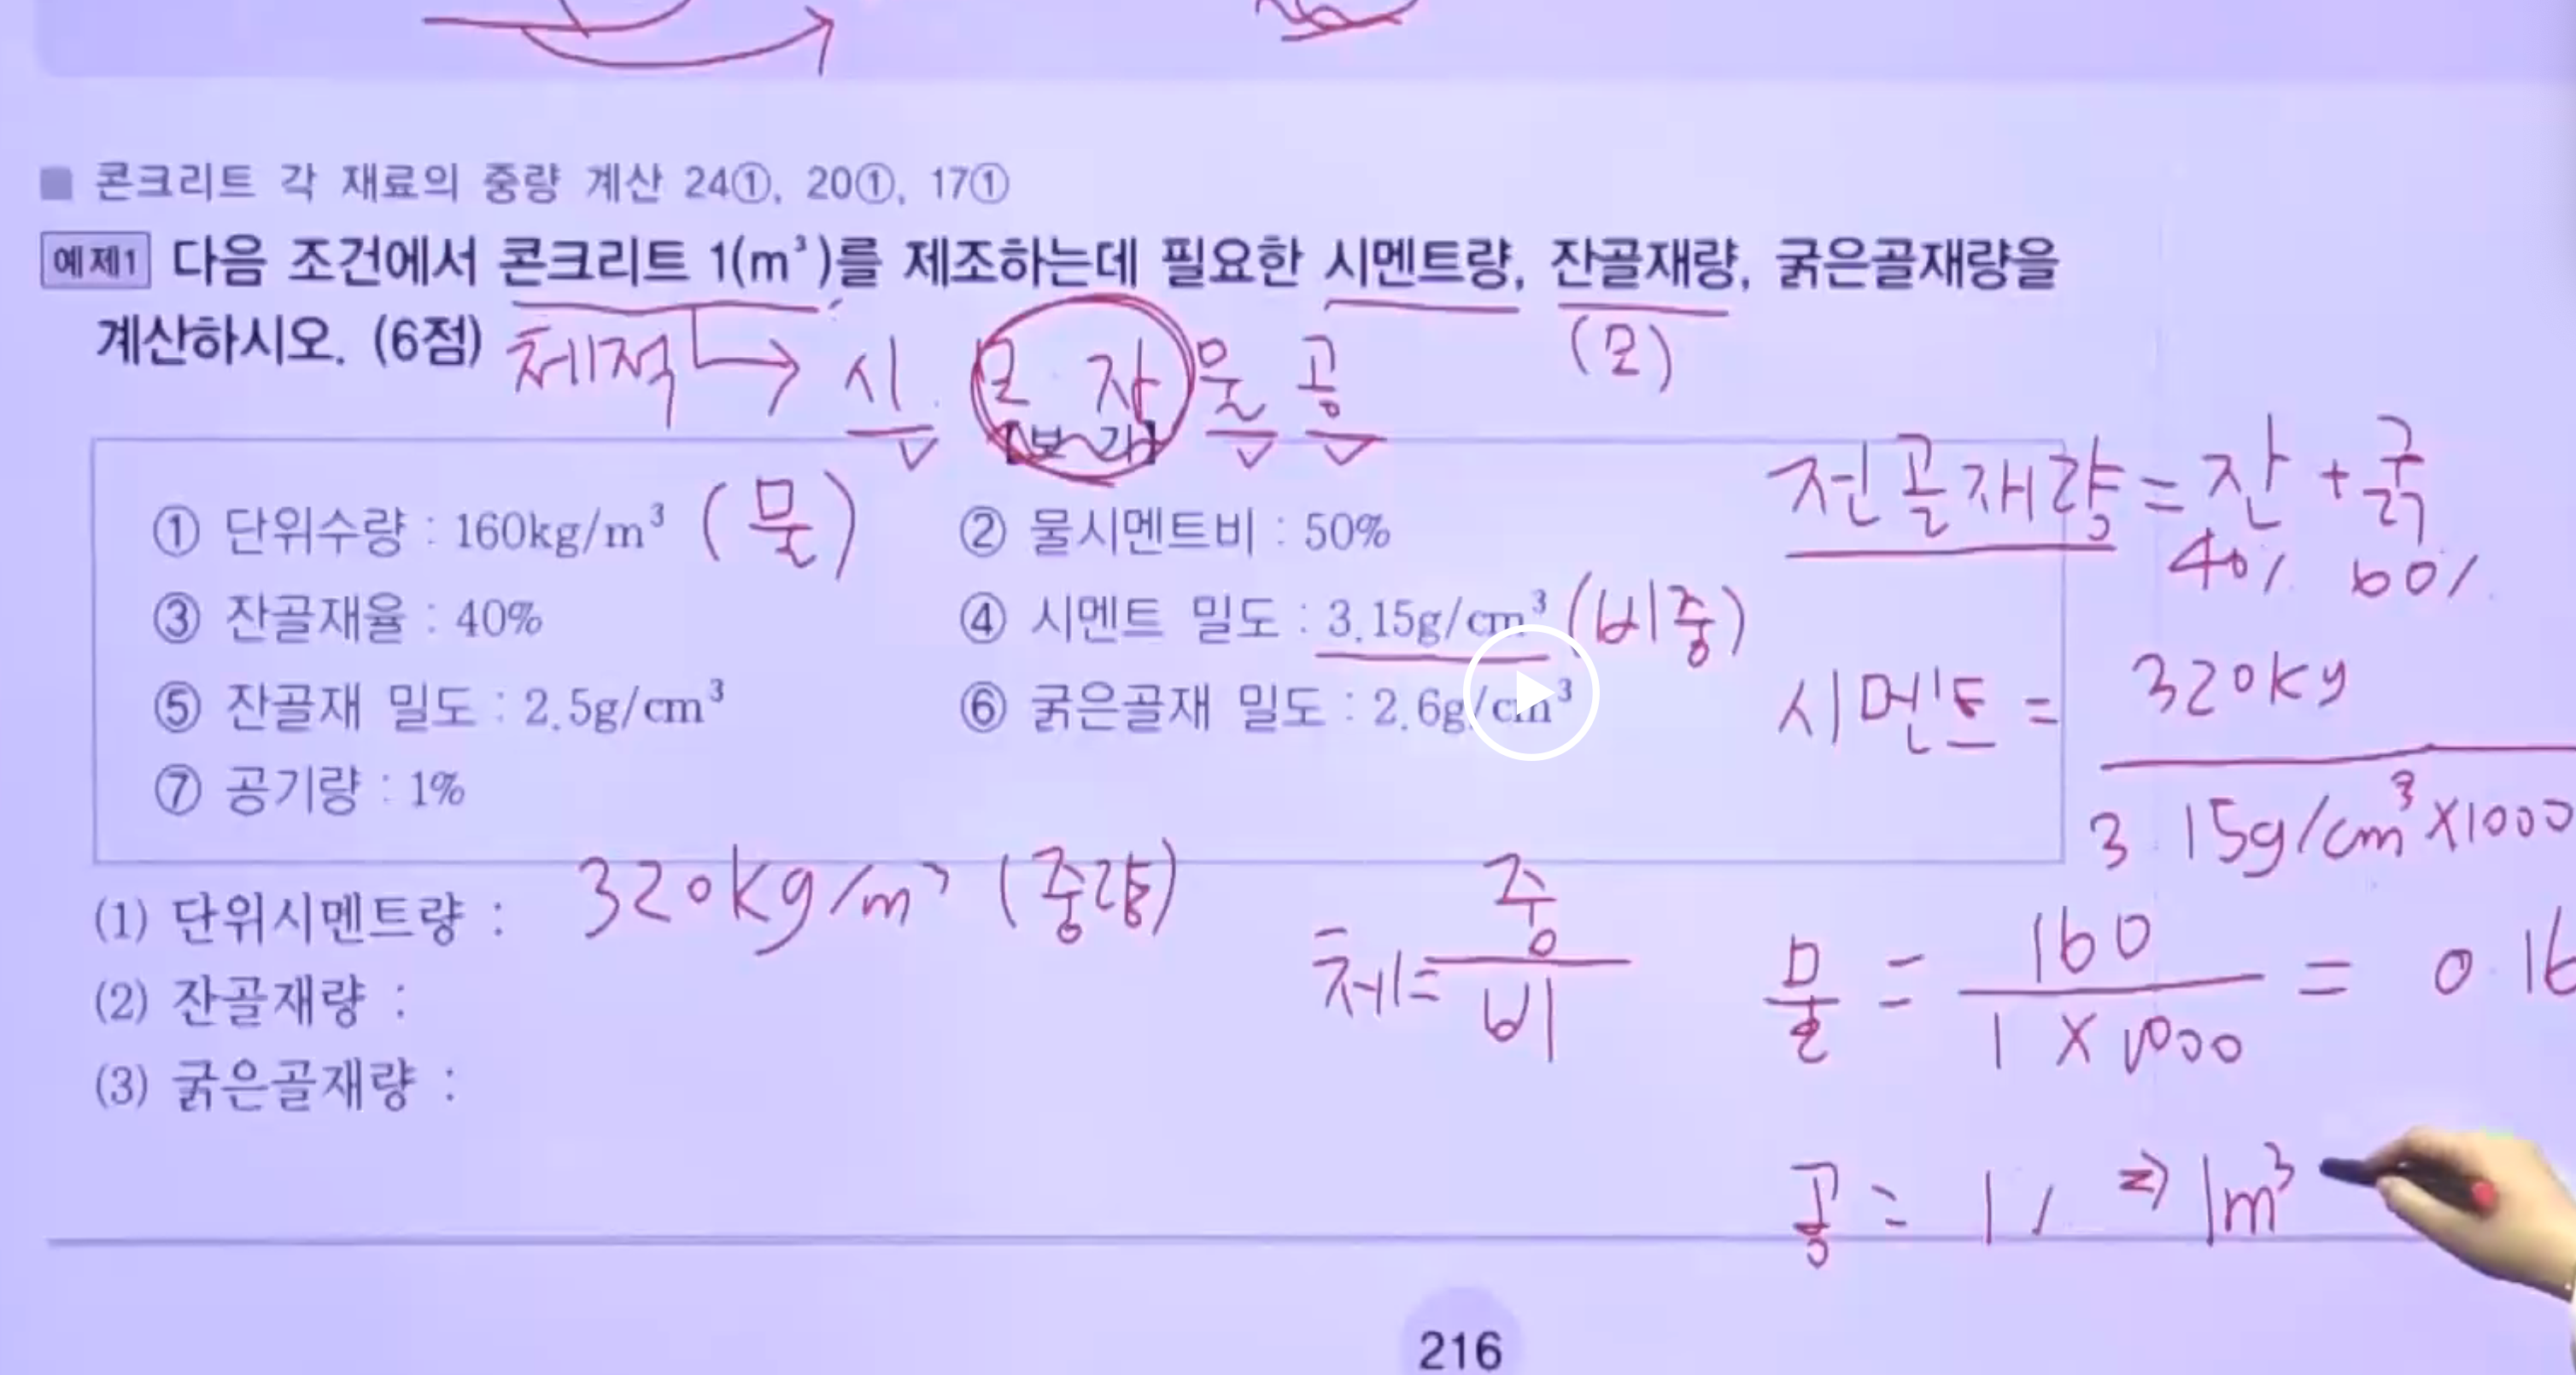 ■ 콘크리트 각 재료의 중량 계산 24①, 20①, 17①
예제1 다음 조건에서 콘크리트 1(m³)를 제조하는데 필요한 시멘트량, 잔골재량, 굵은골재량을
계산하시오. (6점)
체적 → 시 모 자 물 공
(모)
【보 기】
① 단위수량 : 160kg/m³ (물)
② 물시멘트비 : 50%
③ 잔골재율 : 40%
④ 시멘트 밀도 : 3.15g/cm³ (비중)
⑤ 잔골재 밀도 : 2.5g/cm³
⑥ 굵은골재 밀도 : 2.6g/cm³
⑦ 공기량 : 1%
전골재량 = 잔 + 굵
40% 60%
시멘트 = 320kg
3.15g/cm³×1000
(1) 단위시멘트량 : 320kg/m³ (중량)
(2) 잔골재량 :
(3) 굵은골재량 :
체 = 중
비
물 = 160
1×1000
= 0.16
공 = 1% ⇒ 1m³
216